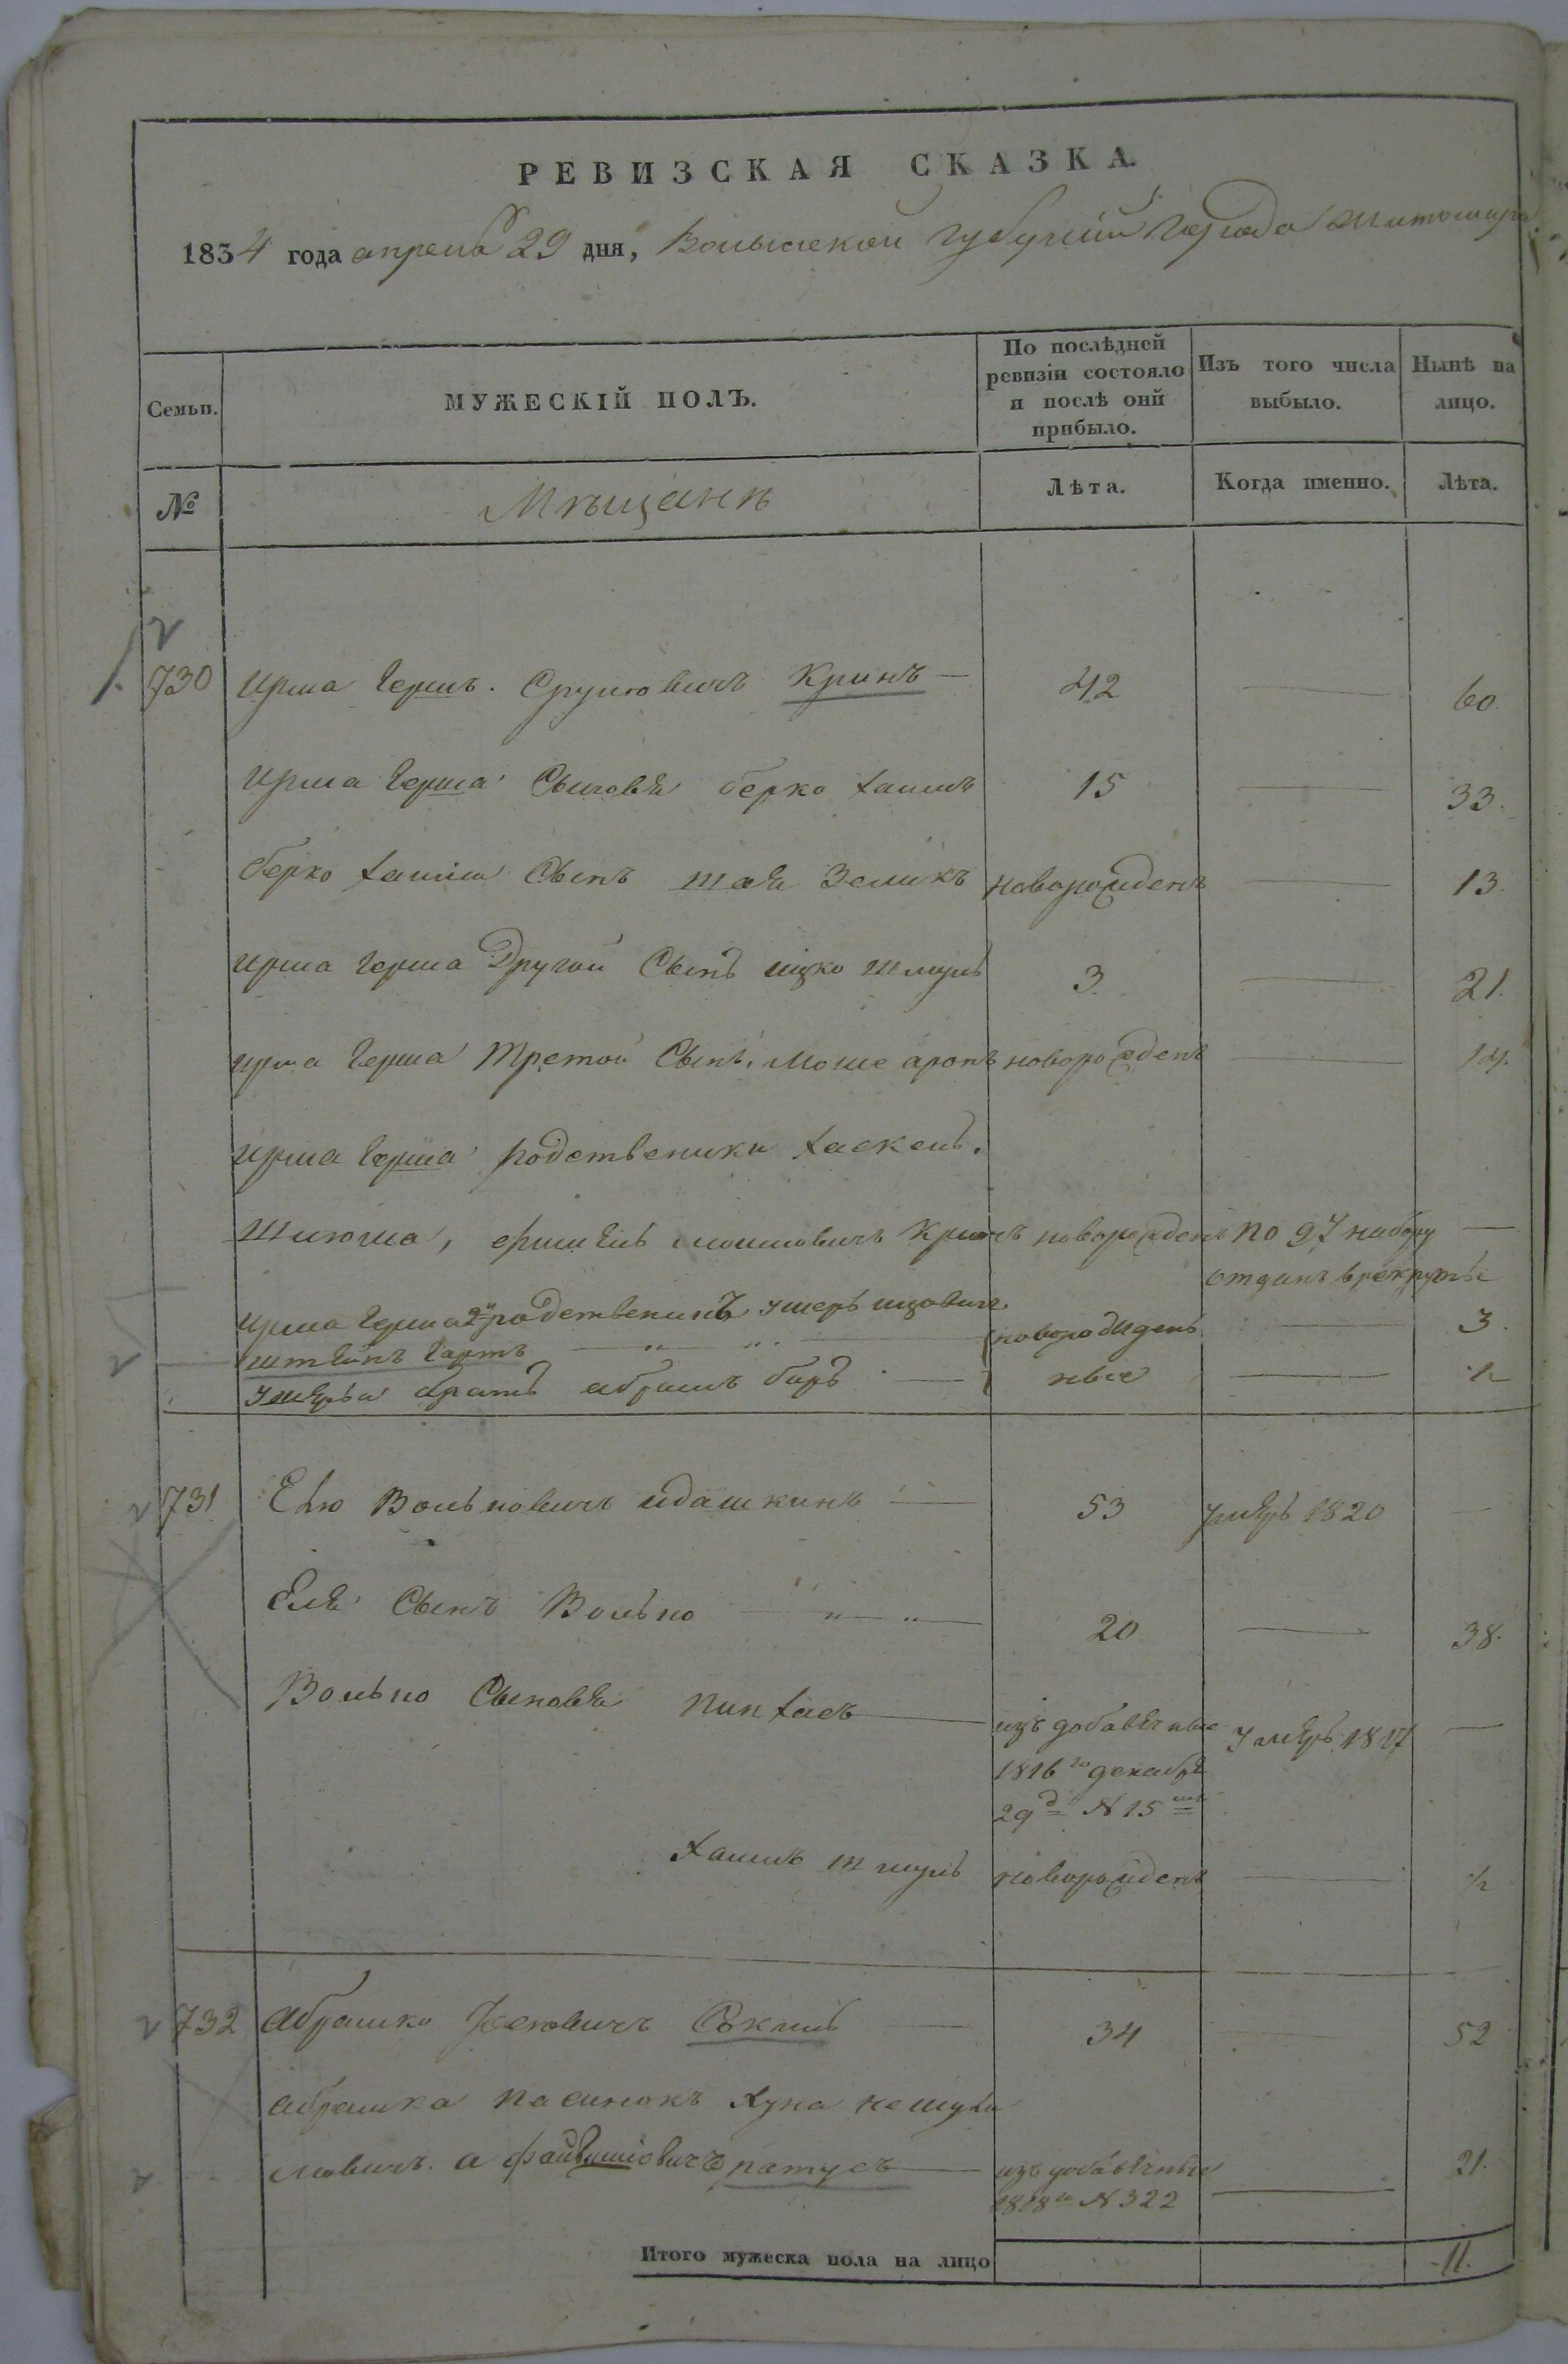 РЕВИЗСКАЯ СКАЗКА.
1834 года апреля 29 дня, Волынской губернии города Житомира
Семьи.
МУЖЕСКІЙ ПОЛЪ.
По послѣдней ревизіи состояло и послѣ оной прибыло.
Изъ того числа выбыло.
Нынѣ на лицо.
№
Мѣщанѣ
Лѣта.
Когда именно.
Лѣта.
730 Ирша Гершъ. Срулювичъ Кринъ — 42 — 60.
Ирша Герша Сыновя берко хаимъ 15 — 33.
берко хаима Сынъ шая Зеликъ новорожденъ — 13.
Ирша Герша Другой Сынъ ицко шмуль 3. — 21.
Ирша Герша Третой Сынъ. Моше аронъ новорожденъ — 14.
Ирша Герша родственики хаскель.
Шлюма, Мошковичъ Кринъ новорожден по 97 набору —
отданъ врекруты
Ирша Герша 2й родственикъ ушеръ ицковичъ новорожден 3.
штейнъ Гартъ — " — " —
Ушера братъ абрамъ беръ — ные — ½
731 Елю Вольковичъ идашкинъ — 53 умеръ 1820 —
Еля Сынъ Волько — " — " — 20 — 38.
Волько Сыновя пинхасъ — изъ добавочные умеръ 1817 —
1816го декабря
29д N 15
хаимъ шмуль новорожденъ — ½
732 Абрашко Сокиль — 34 52
Абрашка пасинокъ хуна
левичъ. а ратусъ — изъ добавочные — 21.
1818го N 322
Итого мужеска пола на лицо 11.